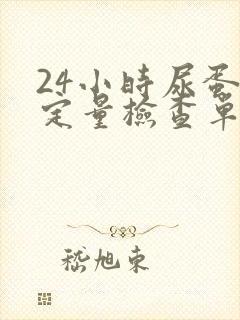 24小時尿蛋
定量檢查單
嵇旭東